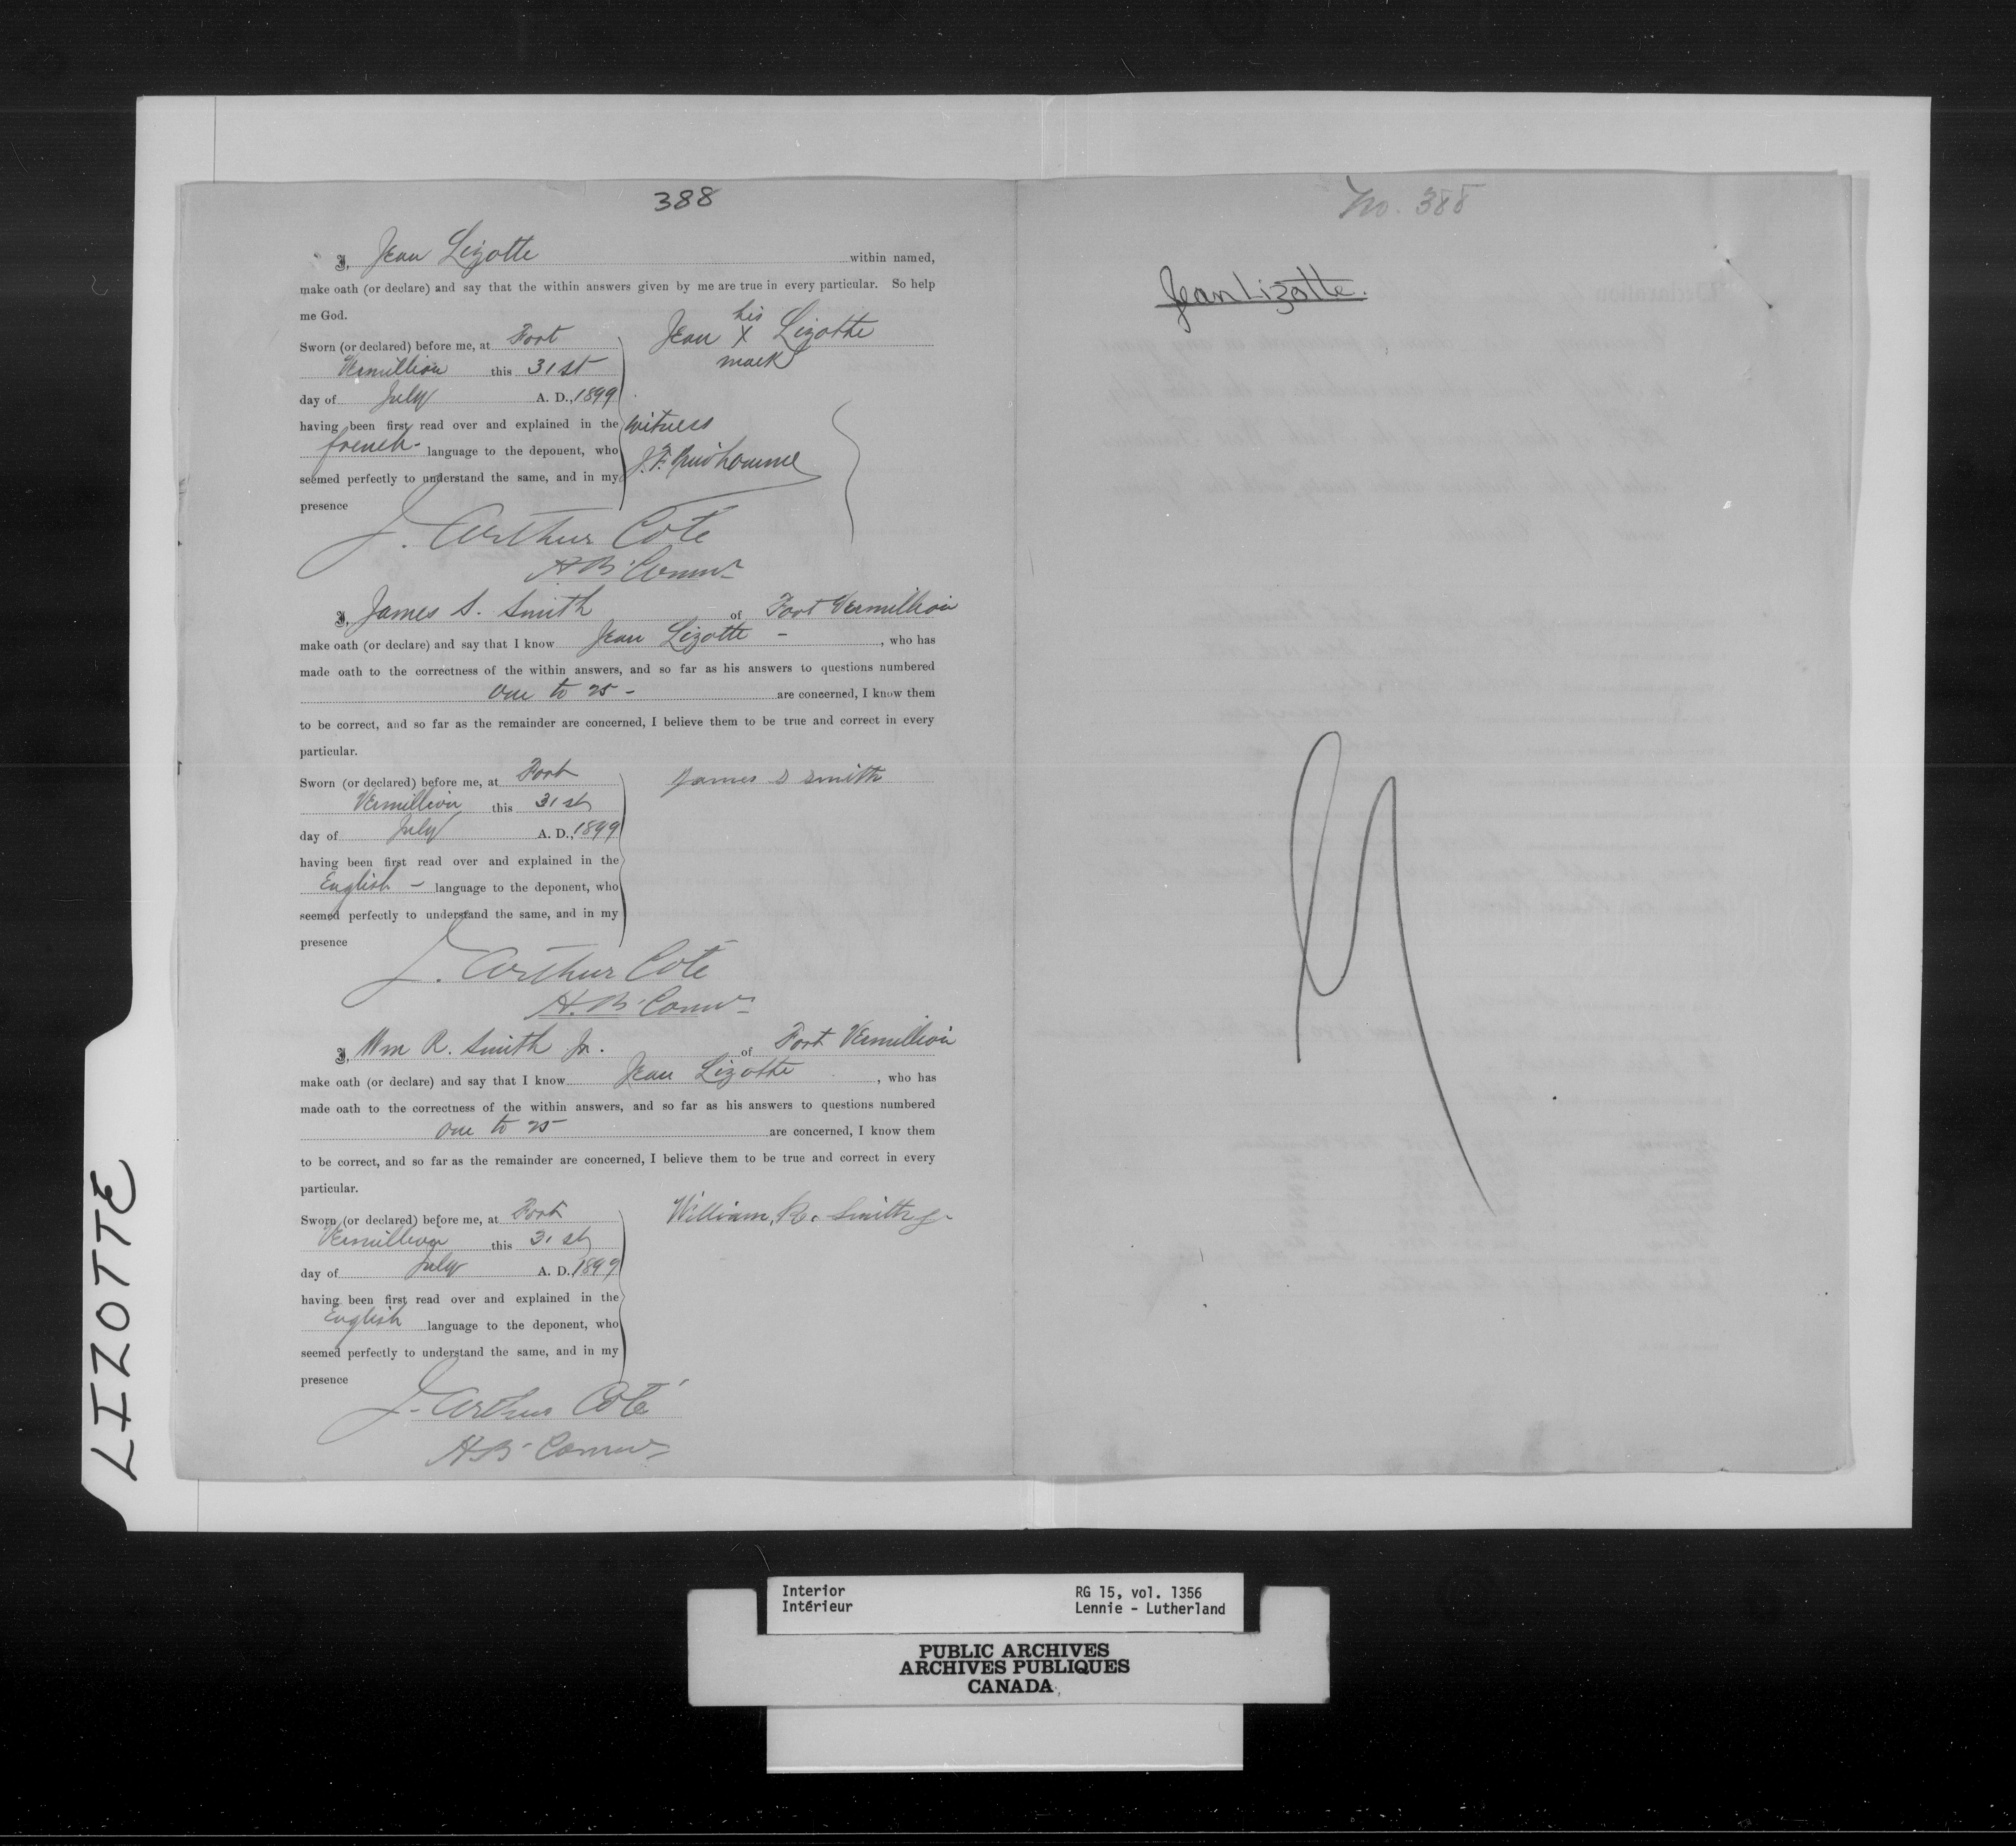 388
I, Jean Lizotte within named,
make oath (or declare) and say that the within answers given by me are true in every particular. So help
me God.
Sworn (or declared) before me, at Fort
Vermillion this 31st
day of July A. D., 1899
having been first read over and explained in the
french language to the deponent, who
seemed perfectly to understand the same, and in my
presence
his
Jean X Lizotte
mark
witness
J. F. Prudhomme
J. Arthur Coté
H B Comr
I, James S. Smith of Fort Vermillion
make oath (or declare) and say that I know Jean Lizotte - , who has
made oath to the correctness of the within answers, and so far as his answers to questions numbered
One to 25 - are concerned, I know them
to be correct, and so far as the remainder are concerned, I believe them to be true and correct in every
particular.
Sworn (or declared) before me, at Fort
Vermillion this 31st
day of July A. D., 1899
having been first read over and explained in the
English - language to the deponent, who
seemed perfectly to understand the same, and in my
presence
James S Smith
J. Arthur Coté
H. B. Comr
I, Wm R. Smith Jr. of Fort Vermillion
make oath (or declare) and say that I know Jean Lizotte , who has
made oath to the correctness of the within answers, and so far as his answers to questions numbered
One to 25 are concerned, I know them
to be correct, and so far as the remainder are concerned, I believe them to be true and correct in every
particular.
Sworn (or declared) before me, at Fort
Vermillion this 31st
day of July A. D. 1899
having been first read over and explained in the
English language to the deponent, who
seemed perfectly to understand the same, and in my
presence
William R. Smith Jr
J. Arthur Coté
H B Comr
No. 388
Jean Lizotte.
LIZOTTE
Interior
Intérieur
RG 15, vol. 1356
Lennie - Lutherland
PUBLIC ARCHIVES
ARCHIVES PUBLIQUES
CANADA